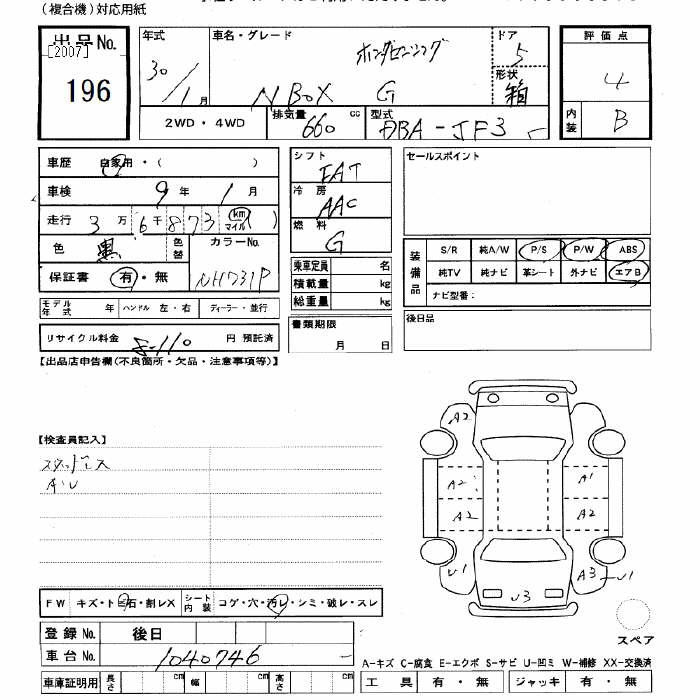 (複合機)対応用紙
出品No.
[2007]
196
年式
30/1月
車名・グレード
N BOX G
ドア
5
形状
箱
評価点
4
内装
B
2WD・4WD
排気量
660 cc
型式
DBA-JF3
車歴
自家用・( )
車検
9年 1月
走行
3万6千873 (km マイル)
色
黒
色替
カラーNo.
NH731P
保証書
有・無
モデル年式 年
ハンドル 左・右
ディーラー・並行
リサイクル料金
円 預託済
シフト
FAT
冷房
AAC
燃料
G
乗車定員 名
積載量 kg
総重量 kg
書類期限
月 日
セールスポイント
装備品
S/R 純A/W P/S P/W ABS
純TV 純ナビ 革シート 外ナビ エアB
ナビ型番:
後日品
【出品店申告欄(不良箇所・欠品・注意事項等)】
【検査員記入】
スタッドレス
A・U
A2
A2
A1
A2
A2
U1
A3
U1
U3
スペア
FW キズ・トビ石・割レX
シート内装 コゲ・穴・汚レ・シミ・破レ・スレ
登録No. 後日
車台No. 1040746
車庫証明用 長さ cm 幅 cm 高さ cm
A-キズ C-腐食 E-エクボ S-サビ U-凹ミ W-補修 XX-交換済
工具 有・無 ジャッキ 有・無